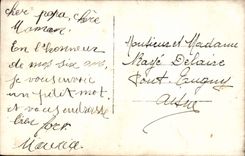 Cher papa, chère
Maman
En l'honneur
de mes six ans,
je vous envoie
un petit mot,
et vous embrasse
bien fort
Monsieur et Madame
Mayé Delaire
Pont
Aisne